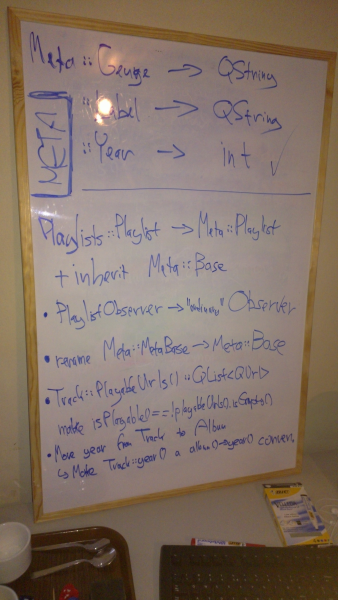 Meta::Genre → QString
::Label → QString
META
::Year → int ✓
Playlists::Playlist → Meta::Playlist
+ inherit Meta::Base
• PlaylistObserver → Observer
• rename Meta::MetaBase → Meta::Base
• Track::PlayableUrls() :: QList<QUrl>
make isPlayable() == !playableUrls().isEmpty()
• Move year from Track to Album
↳ Make Track::year() a album()->year()